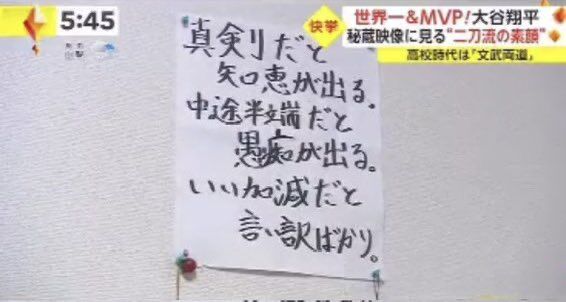 5:45
快挙
世界一&MVP!大谷翔平
秘蔵映像に見る"二刀流の素顔"
高校時代は「文武両道」
真剣だと
知恵が出る。
中途半端だと
愚痴が出る。
いい加減だと
言い訳ばかり。